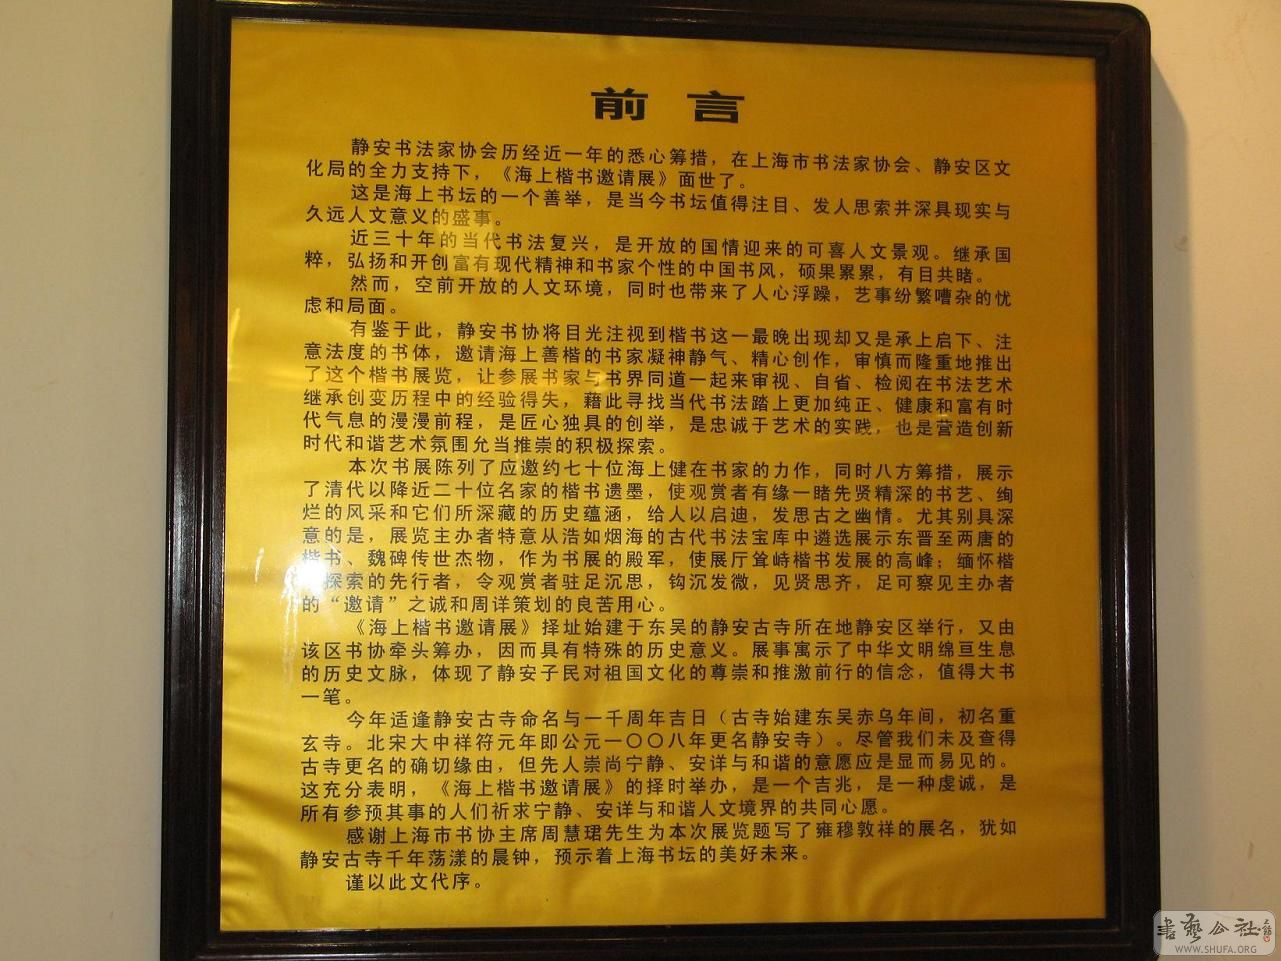 前言
静安书法家协会历经近一年的悉心筹措，在上海市书法家协会、静安区文
化局的全力支持下，《海上楷书邀请展》面世了。
这是海上书坛的一个善举，是当今书坛值得注目、发人思索并深具现实与
久远人文意义的盛事。
近三十年的当代书法复兴，是开放的国情迎来的可喜人文景观。继承国
粹，弘扬和开创富有现代精神和书家个性的中国书风，硕果累累，有目共睹。
然而，空前开放的人文环境，同时也带来了人心浮躁，艺事纷繁嘈杂的忧
虑和局面。
有鉴于此，静安书协将目光注视到楷书这一最晚出现却又是承上启下、注
意法度的书体，邀请海上善楷的书家凝神静气、精心创作，审慎而隆重地推出
了这个楷书展览，让参展书家与书界同道一起来审视、自省、检阅在书法艺术
继承创变历程中的经验得失，藉此寻找当代书法踏上更加纯正、健康和富有时
代气息的漫漫前程，是匠心独具的创举，是忠诚于艺术的实践，也是营造创新
时代和谐艺术氛围允当推崇的积极探索。
本次书展陈列了应邀约七十位海上健在书家的力作，同时八方筹措，展示
了清代以降近二十位名家的楷书遗墨，使观赏者有缘一睹先贤精深的书艺、绚
烂的风采和它们所深藏的历史蕴涵，给人以启迪，发思古之幽情。尤其别具深
意的是，展览主办者特意从浩如烟海的古代书法宝库中遴选展示东晋至两唐的
楷书、魏碑传世杰物，作为书展的殿军，使展厅耸峙楷书发展的高峰；缅怀楷
探索的先行者，令观赏者驻足沉思，钩沉发微，见贤思齐，足可察见主办者
的“邀请”之诚和周详策划的良苦用心。
《海上楷书邀请展》择址始建于东吴的静安古寺所在地静安区举行，又由
该区书协牵头筹办，因而具有特殊的历史意义。展事寓示了中华文明绵亘生息
的历史文脉，体现了静安子民对祖国文化的尊崇和推激前行的信念，值得大书
一笔。
今年适逢静安古寺命名与一千周年吉日（古寺始建东吴赤乌年间，初名重
玄寺。北宋大中祥符元年即公元一〇〇八年更名静安寺）。尽管我们未及查得
古寺更名的确切缘由，但先人崇尚宁静、安详与和谐的意愿应是显而易见的。
这充分表明，《海上楷书邀请展》的择时举办，是一个吉兆，是一种虔诚，是
所有参预其事的人们祈求宁静、安详与和谐人文境界的共同心愿。
感谢上海市书协主席周慧珺先生为本次展览题写了雍穆敦祥的展名，犹如
静安古寺千年荡漾的晨钟，预示着上海书坛的美好未来。
谨以此文代序。
書藝公社
WWW.SHUFA.ORG